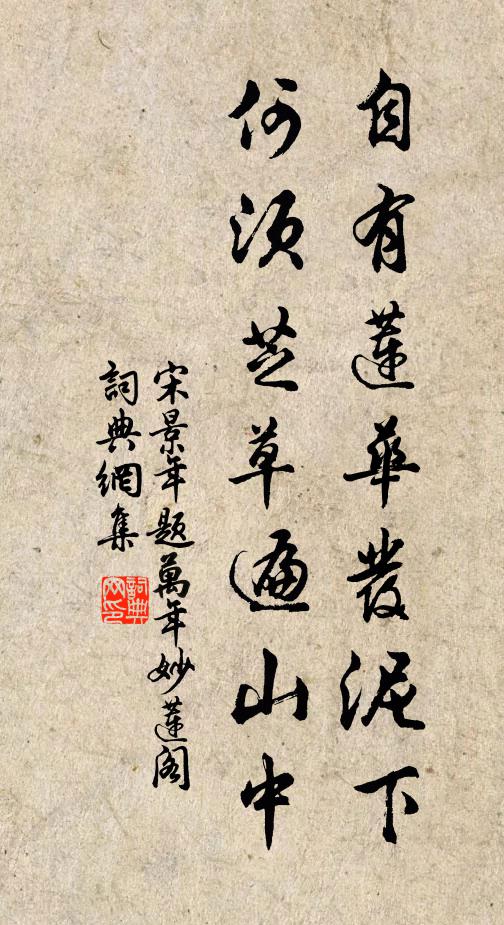 自有蓮華發泥下
何須芝草遍山中
宋景年題萬年妙蓮閣
詞典網集
詞典网印